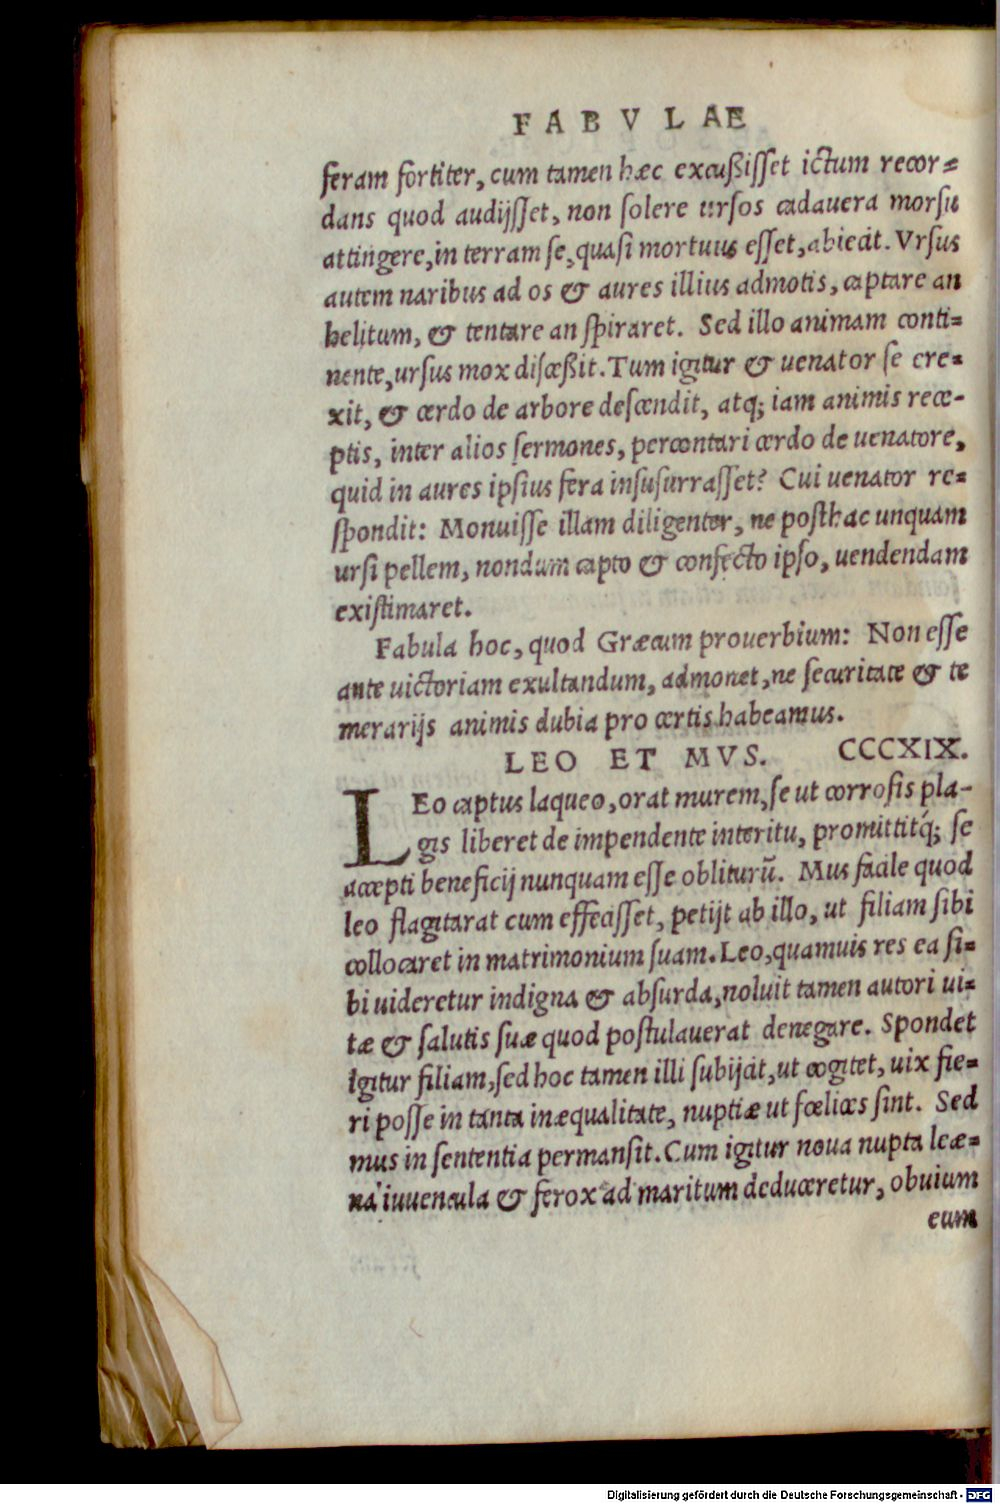 FABVLAE
feram fortiter, cum tamen hæc excußisset ictum recor=
dans quod audijsset, non solere ursos cadauera morsu
attingere, in terram se, quasi mortuus esset, abiecit. Vrsus
autem naribus ad os & aures illius admotis, captare an
helitum, & tentare an spiraret. Sed illo animam conti=
nente, ursus mox disceßit. Tum igitur & uenator se ere=
xit, & cerdo de arbore descendit, atq; iam animis rece-
ptis, inter alios sermones, percontari cerdo de uenatore,
quid in aures ipsius fera insusurrasset? Cui uenator re=
spondit: Monuisse illam diligenter, ne posthac unquam
ursi pellem, nondum capto & confecto ipso, uendendam
existimaret.
Fabula hoc, quod Græcum prouerbium: Non esse
ante uictoriam exultandum, admonet, ne securitate & te
merarijs animis dubia pro certis habeamus.
LEO ET MVS. CCCXIX.
LEo captus laqueo, orat murem, se ut corrosis pla-
gis liberet de impendente interitu, promittitq́; se
accepti beneficij nunquam esse obliturū. Mus facile quod
leo flagitarat cum effecisset, petijt ab illo, ut filiam sibi
collocaret in matrimonium suam. Leo, quamuis res ea si=
bi uideretur indigna & absurda, noluit tamen autori ui=
tæ & salutis suæ quod postulauerat denegare. Spondet
igitur filiam, sed hoc tamen illi subijcit, ut cogitet, uix fie=
ri posse in tanta inæqualitate, nuptiæ ut fœlices sint. Sed
mus in sententia permansit. Cum igitur noua nupta leæ=
na iuuencula & ferox ad maritum deduceretur, obuium
eum
Digitalisierung gefördert durch die Deutsche Forschungsgemeinschaft - DFG